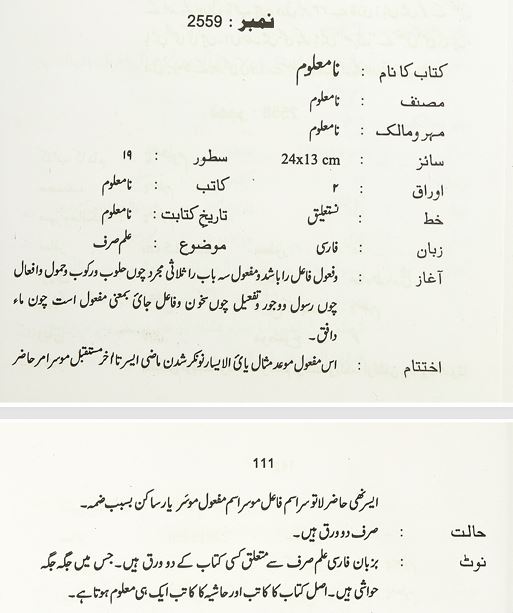 نمبر : 2559
کتاب کا نام : نامعلوم
مصنف : نامعلوم
مہر و مالک : نامعلوم
سائز : 24x13 cm سطور : ۱۹
اوراق : ۲ کاتب : نامعلوم
خط : نستعلیق تاریخ کتابت : نامعلوم
زبان : فارسی موضوع : علم صرف
آغاز : وفعول فاعل را باشد ومفعول سہ باب را ثلاثی مجرد چوں حلوب ورکوب وحمول وافعال
چوں رسول ودجور وتفعیل چوں سخون وفاعل جائ بمعنی مفعول است چون ماء
دافق۔
اختتام : اس مفعول موعد مثال یائ الایسار تونگر شدن ماضی ایسر تا اخر مستقبل موسر امر حاضر
111
ایسر نھی حاضر لا توسر اسم فاعل موسر اسم مفعول موسَر یار ساکن بسبب ضمہ۔
حالت : صرف دو ورق ہیں۔
نوٹ : بزبان فارسی علم صرف سے متعلق کسی کتاب کے دو ورق ہیں۔ جس میں جگہ جگہ
حواشی ہیں۔ اصل کتاب کا کاتب اور حاشیہ کا کاتب ایک ہی معلوم ہوتا ہے۔